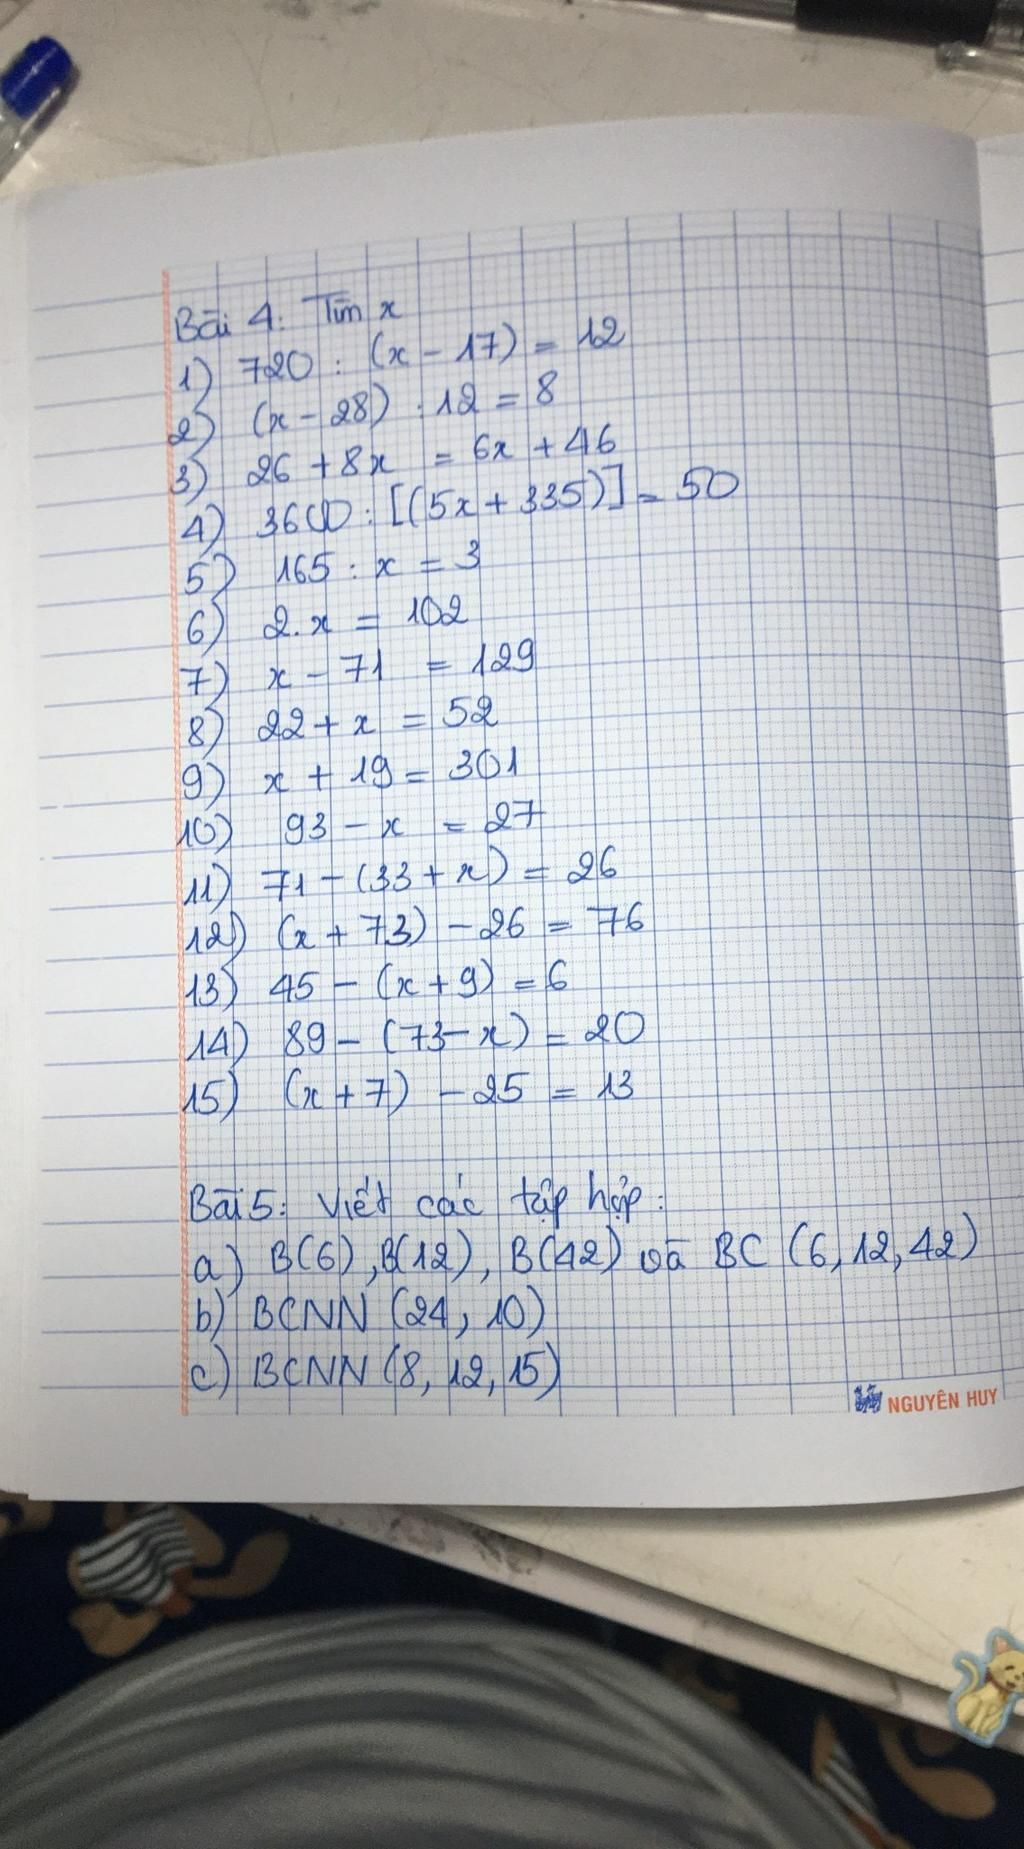 Bài 4: Tìm x
1) 720 : (x - 17) = 12
2) (x - 28) : 12 = 8
3) 26 + 8x = 6x + 46
4) 3600 : [(5x + 335)] = 50
5) 165 : x = 3
6) 2.x = 102
7) x - 71 = 129
8) 22 + x = 52
9) x + 19 = 301
10) 93 - x = 27
11) 71 - (33 + x) = 26
12) (x + 73) - 26 = 76
13) 45 - (x + 9) = 6
14) 89 - (73 - x) = 20
15) (x + 7) - 25 = 13
Bài 5: Viết các tập hợp:
a) B(6), B(12), B(42) và BC (6, 12, 42)
b) BCNN (24, 10)
c) BCNN (8, 12, 15)
NGUYÊN HUY